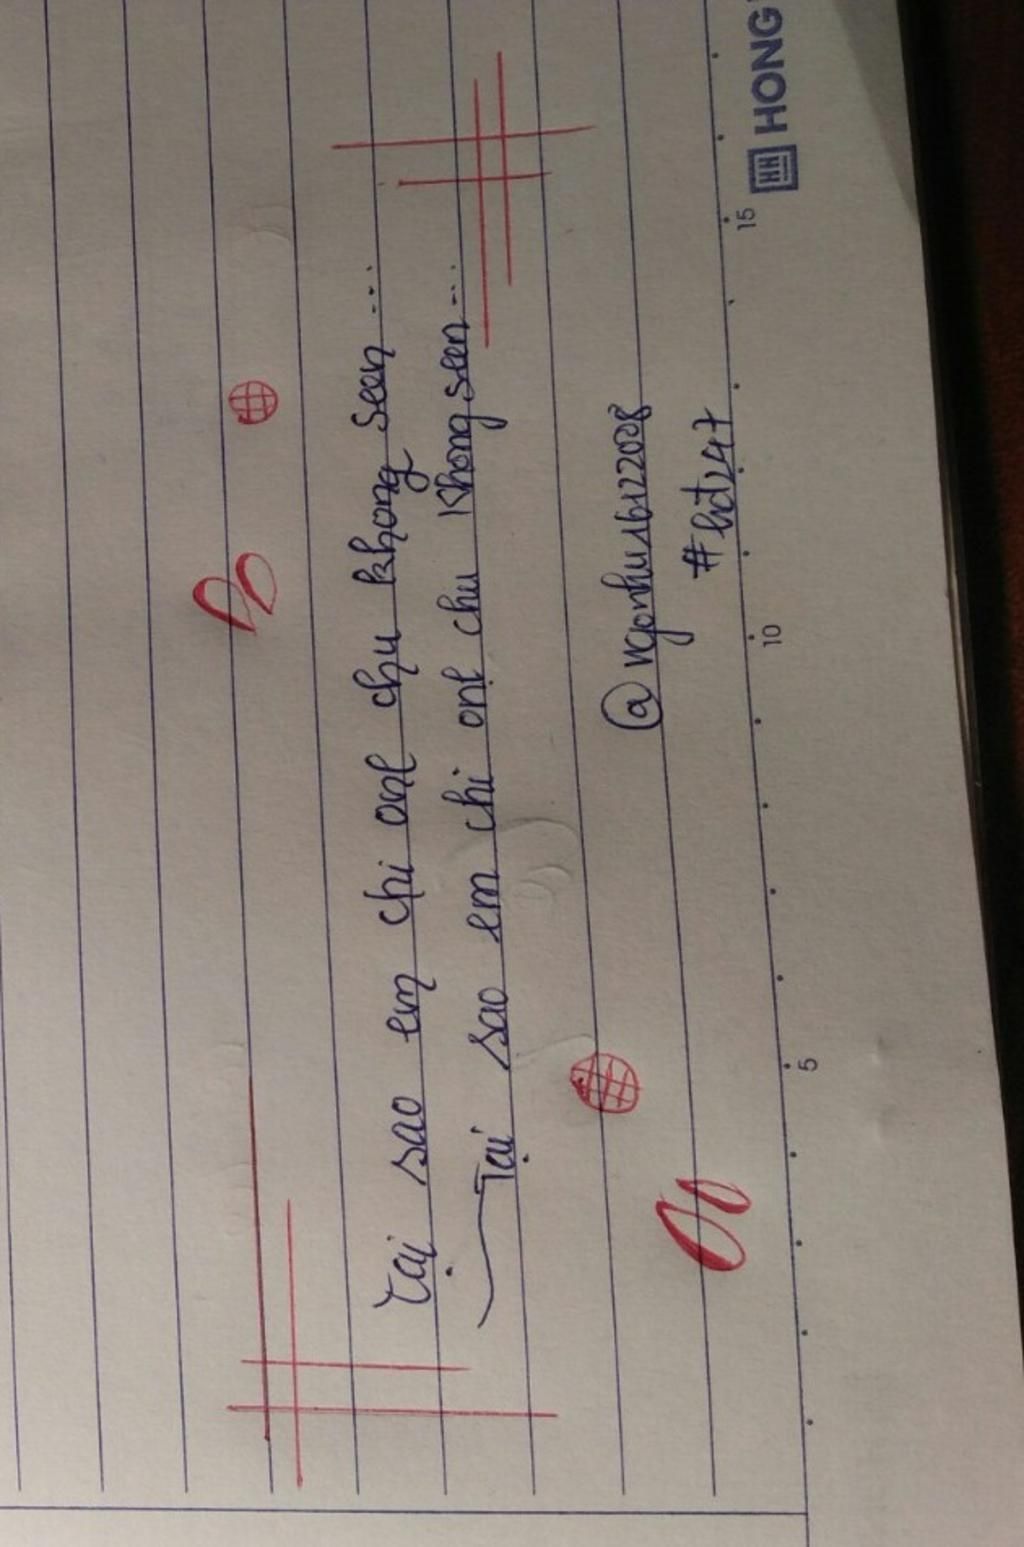 Tại sao em chi onl chu khong seen...
Tại sao em chi onl chu Khong seen...
@ngonhu16122008
#hct247
5
10
15
HONG